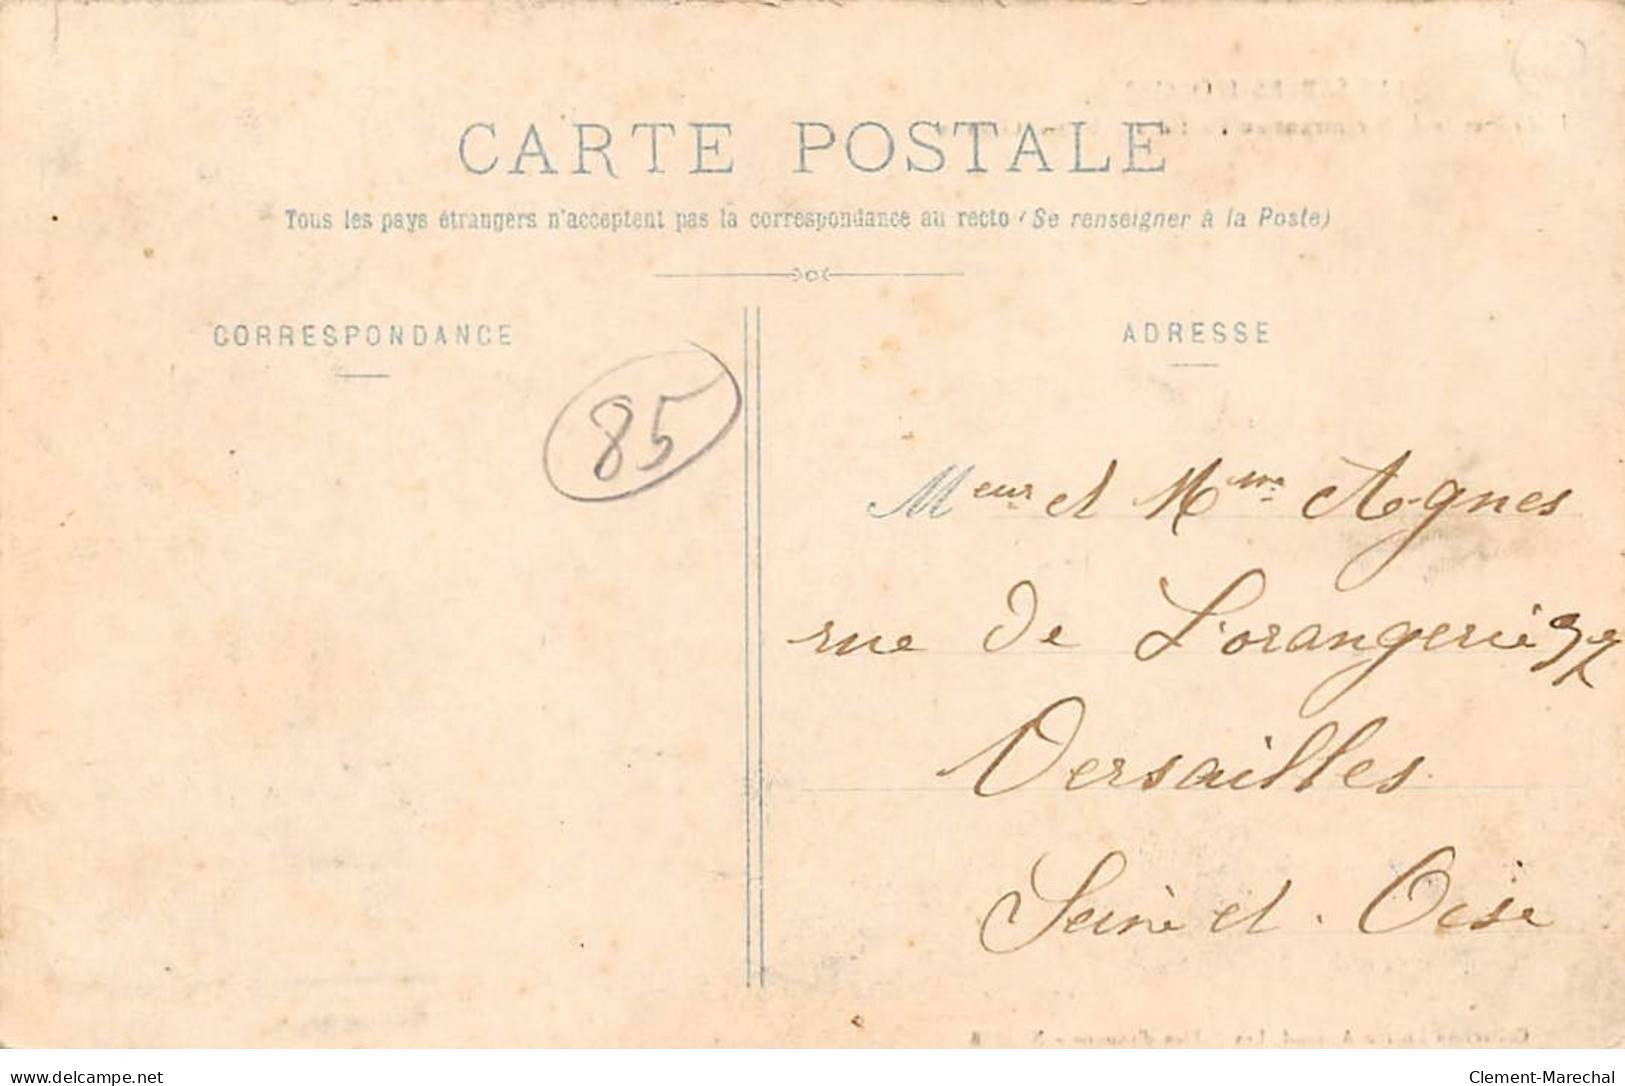 CARTE POSTALE
Tous les pays étrangers n'acceptent pas la correspondance au recto (Se renseigner à la Poste)
CORRESPONDANCE
ADRESSE
85
Meur et Mme Agnes
rue de L'orangerie 37
Versailles
Seine et. Oise
delcampe.net
Clement-Marechal